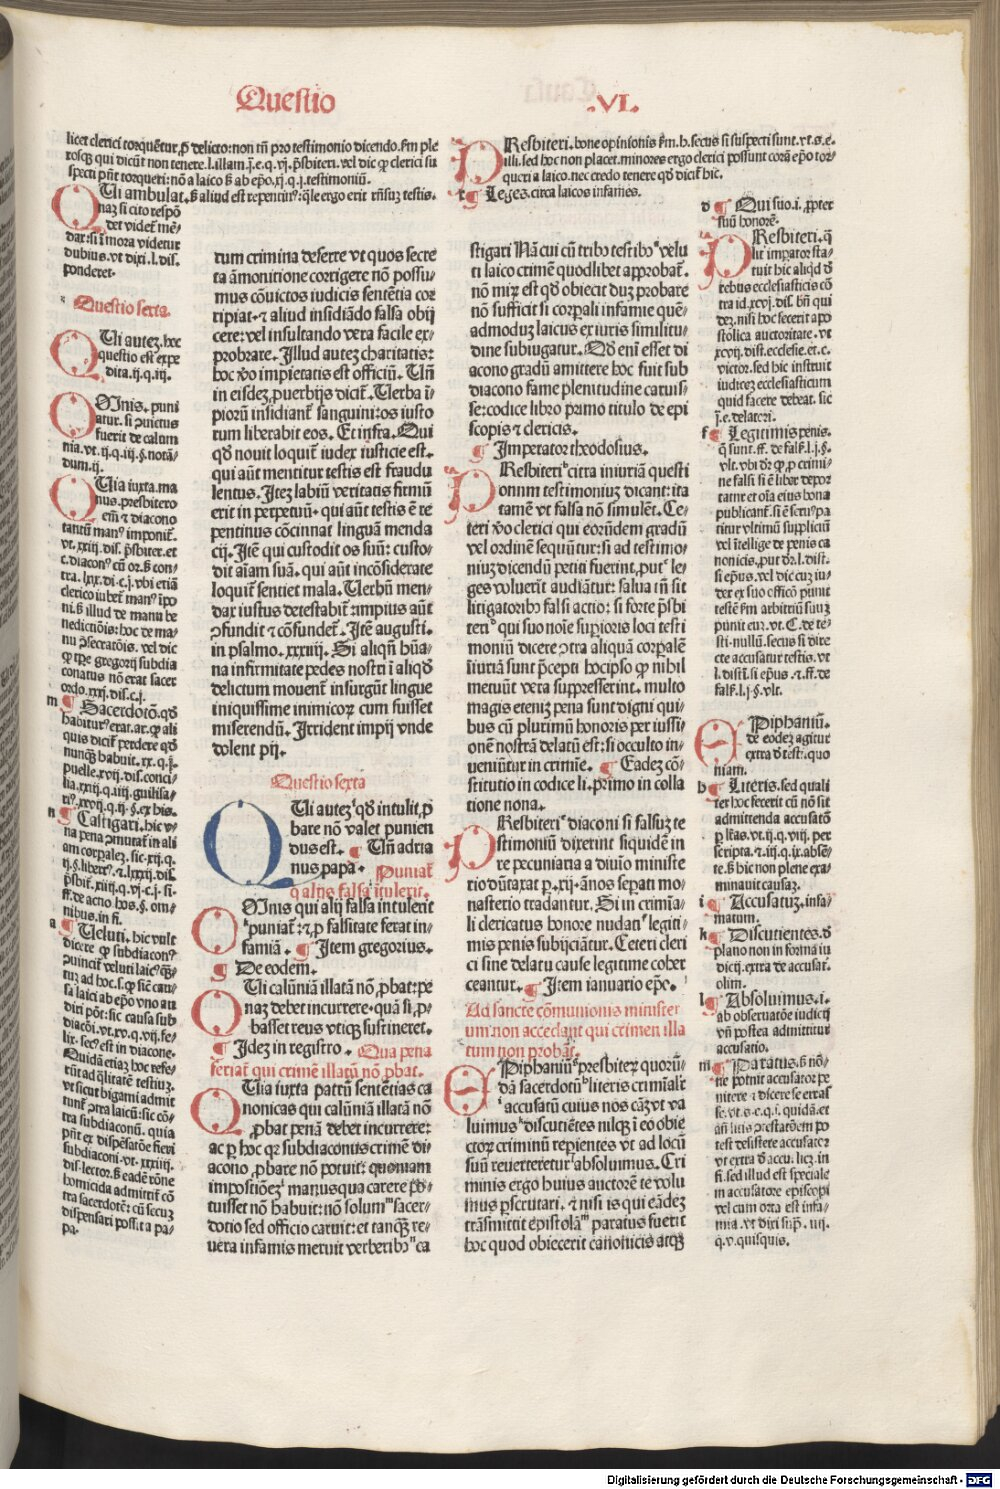 Questio
.VI.
licet clerici torquētur, ꝓ delicto: non tn̄ pro testimonio dicendo. fm ple
rosq; qui dicūt non tenere. l. illam. j. e. q. vij. p̄sbiteri. vel dic ꝙ clerici su
specti pn̄t torqueri: nō a laico ß ab ep̄o. xj. q. j. testimoniū.
QUi ambulat. ß aliud est repentin⁹: q̄le ergo erit rn̄suz testis.
naz si cito respō
det videt̄ mē⸗
dax: si ī mora videtur
dubius. vt dixi. l. dis.
ponderet.
Questio sexta.
QUi autez. hoc
questio est expe
dita. ij. q. iij.
OMnis. puni
atur. si ꝯuictus
fuerit de calum
nia. vt. ij. q. iij. §. notā⸗
dum. ij.
QUia iuxta. ma
nus. presbitero
em̄ ⁊ diacono
tantū man⁹ imponit̄.
vt. xxiij. dis. p̄sbiter. et
c. diacon⁹ cū or. ß con⸗
tra. lxx. di. c. j. vbi etiā
clerico iubet̄ man⁹ īpo
ni. ß illud de manu be
nedictiōis: hoc de ma⸗
nu ꝯsecratōis. vel dic
ꝙ tp̄e gregorij subdia
conatus nō erat sacer
ordo. xxj. dis. c. j.
m ¶ Sacerdotō. qd̄
habitur⁹ erat. ar. ꝙ ali
quis dicit̄ perdere qd̄
nunq̄ habuit. xx. q. j.
puelle. xvij. dis. conci⸗
lia. xxij. q. iiij. guilisa⸗
ri⁹. xxvij. q. ij. §. ex his.
n ¶ Castigari. hic v⸗
na pena ꝯmutat̄ in ali
am corpalez. sic. xij. q.
ij. §. libert⁹. ⁊. lxxij. dis.
p̄sbit̄. xiij. q. vj. c. j. si⸗
ff. de actio. hos. §. om⸗
nibus. in fi.
a ¶ Ueluti. hic vult
dicere ꝙ subdiacon⁹
ꝯuincit̄ veluti laic⁹ q̄si⸗
tuz ad hoc. s. ꝙ sic̄ cau⸗
sa laici ab ep̄o vno au
diri pōt: sic causa sub
diacōi. vt. xv. q. vij. fe⸗
lix. sec⁹ est in diacone.
Quidā etiaz hoc refe⸗
tūt ad q̄litatē testiuz.
vt sicut bigami admit
tunt̄ ꝯtra laicū: sic cō⸗
tra subdiaconū. quia
pn̄t ex dispēsatōe fieri
subdiaconi. vt. xxxiiij.
dis. lector. ß eadē rōne
homicida admittit̄ cō
tra sacerdotē: cū secuz
dispensari possit a pa⸗
pa.
rum crimina deserre vt quos secre
ta āmonitione corrigere nō possu⸗
mus cōuictos iudicis sentētia cor
ripiat. ⁊ aliud insidiādo falsa obij
cere: vel insultando vera facile ex⸗
probrare. Illud autez charitatis:
hoc v̄o impietatis est officiū. Un̄
in eisdez, puerbijs dicit̄. Uerba ī⸗
piorū insidiant̄ sanguini: os iusto
rum liberabit eos. Et infra. Qui
qd̄ nouit loquit̄ iudex iusticie est.
qui aūt mentitur testis est fraudu
lentus. Itez labiū veritatis firmū
erit in perpetuū. qui aūt testis ē re
pentinus cōcinnat linguā menda
cij. Itē qui custodit os suū: custo⸗
dit aīam suā. qui aūt incōsiderate
loquit̄ sentiet mala. Uerbū men⸗
dax iustus detestabit̄: impius aūt
ꝯfundit ⁊ cōfundet̄. Itē augusti.
in psalmo. xxxvij. Si aliqn̄ hūa⸗
na infirmitate pedes nostri ī aliqd̄
delictum mouent̄ insurgūt lingue
iniquissime inimicoꝝ cum fuisset
miserendū. Irrident impij vnde
dolent pij.
Questio sexta
QUi autez qd̄ intulit, p
bare nō valet punien
dus est. ¶ Un̄ adria
nus papa. Puniat̄
q̄ alijs falsa ītulerit.
OMnis qui alij falsa intulerit
puniat̄: ⁊ ꝓ falsitate ferat in⸗
famiā. ¶ Item gregorius.
¶ De eodem.
QUi calūniā illatā nō, pbat: pe
naz debet incurrere. quā si, p⸗
basset reus vtiq; sustineret.
¶ Idez in registro. Qua pena
feriat̄ qui crimē illatū nō pbat.
QUia iuxta patrū sentētias ca
nonicas qui calūniā illatā nō
, pbat penā debet incurrere:
ac ꝑ hoc qꝛ subdiaconus crimē di⸗
acono, pbare nō potuit: quoniam
impostiōez manus qua carere po⸗
tuisset nō habuit: nō solum sacer⸗
dotio sed officio caruit: et tanq̄z re⸗
vera infamis meruit verberibꝫ ca
PResbiteri. bone opinionis fm. h. secus si suspecti sunt. vt. s. e.
illi. sed hoc non placet. minores ergo clerici possunt corā ep̄o tor⸗
queri a laico. nec credo tenere qd̄ dicit̄ hic.
t ¶ Leges. circa laicos infames.
stigari Nā cui cū tribꝫ testibꝫ velu
ti laico crimē quodlibet approbat̄.
nō miꝝ est qd̄ obiecit duz probare
nō sufficit si corpali infamie quē⸗
admoduz laicus ex iuris similitu⸗
dine subiugatur. Qd̄ enī esset di
acono gradū amittere hoc fuit sub
diacono fame plenitudine caruis⸗
se: codice libro primo titulo de epi
scopis ⁊ clericis.
¶ Imperator theodosius.
PResbiteri citra iniuriā questi
onnm testimoniuz dicant: ita
tamē vt falsa nō simulēt. Ce⸗
teri v̄o clerici qui eorūdem gradū
vel ordinē sequūtur: si ad testimo⸗
niuz dicendū petiti fuerint, put le⸗
ges voluerit audiātur: salua tn̄ sit
litigatoribꝫ falsi actio: si forte p̄sbi
teri qui suo noīe suꝑioris loci testi
moniū dicere ꝯtra aliquā corpalē
iniuriā sunt p̄cepti hocipso ꝙ nihil
metuūt vera suppresserint. multo
magis eteniz pena sunt digni qui⸗
bus cū plurimū honoris per iussi⸗
onē nostrā delatū est: si occulto in⸗
ueniūtur in crimie. ¶ Eadez cō⸗
stitutio in codice li. primo in colla
tione nona.
PResbiteri diaconi si falsuz te
stimoniū dixerint siquidē in
re pecuniaria a diuio ministe
rio dūtaxat ꝑ. xij. ānos sepati mo⸗
nasterio tradantur. Si in crimīa⸗
li clericatus honore nudati legiti⸗
mis penis subijciātur. Ceteri cleri
ci sine delatu cause legitime coher
ceantur. ¶ Item ianuario ep̄c.
Ad sancte cōmunionis minister
ium non accedant qui crimen illa
tum non probāt.
EPiphaniū presbiteꝝ quorū⸗
dā sacerdotū literis crimīalit̄
accusatū cuius nos cāz vt va
luimus discutiētes nilq; ī eo obie
ctoꝝ criminū repientes vt ad locū
suū reuerteretur absoluimus. Cri
minis ergo huius auctorē te volu
mus pscrutari. ⁊ nisi is qui eādez
trāsmittit epistolā paratus fuerit
hoc quod obiecerit canonicis atq;
d ¶ Qui suo. i. ꝓpter
suū honorē.
PResbiteri. q̄
lit̄ impator sta⸗
tuit hic aliqd̄ d̄
rebus ecclesiasticis cō
tra id. xcvj. dis. bn̄ qui
dez. nisi hoc fecerit apo
stolica auctoritate. vt
xcvij. dist. ecclesie. et. c.
victor. sed hic instruit
iudicez ecclesiasticum
quid facere debeat. sic
j. e. delatori.
f ¶ Legitimis penis.
q̄ sunt. ff. de fals. l. j. §.
vlt. vbi dr̄: ꝙ, p crimi⸗
ne falsi si ē liber depor
tatur et oīa eius bona
publicant̄. si ē seru⁹ pa
titur vltimū supplicui
vel ītellige de penis ca
nonicis. put dr̄. l. dist.
si ep̄us. vel dic cuz iu⸗
dex ex suo officō punit
testē fm arbitriū suuz
punit eū. vt. C. de te⸗
sti. nullū. secus si dire
cte accusatur testis. vt
l. dist. si ep̄us. ⁊. ff. de
fals. l. j. §. vlt.
EPiphaniū.
de eodez agitur
extra d̄ test. quo
niam.
h ¶ Literis. sed quali
ter hoc fecerit cū nō sit
admittenda accusatō
ꝑ lr̄as. vt. ij. q. viij. per
scripta. ⁊. iij. q. ix. absē⸗
te. ß hic non plene exa⸗
minauit causaz.
i ¶ Accusatuz. infa⸗
matum.
k ¶ Discutientes. d̄
plano non in forma iu
dicij. extra de accusat.
olim.
l ¶ Absoluimus. i.
ab obseruatōe iudicij
vn̄ postea admittitur
accusatio.
m ¶ Paratus. ß nō⸗
ne potuit accusator pe
nitere ⁊ dicere se errasse. vt. s. e. q. i. quidā. et
an̄ litis ꝯtestatōem po
test desistere accusator
vt extra d̄ accu. licz. in
fi. sed illud est speciale
in accusatore episcopi
vel cum orta est infa⸗
mia. vt dixi sup. iiij.
q. v. quisquis.
Digitalisierung gefördert durch die Deutsche Forschungsgemeinschaft - DFG